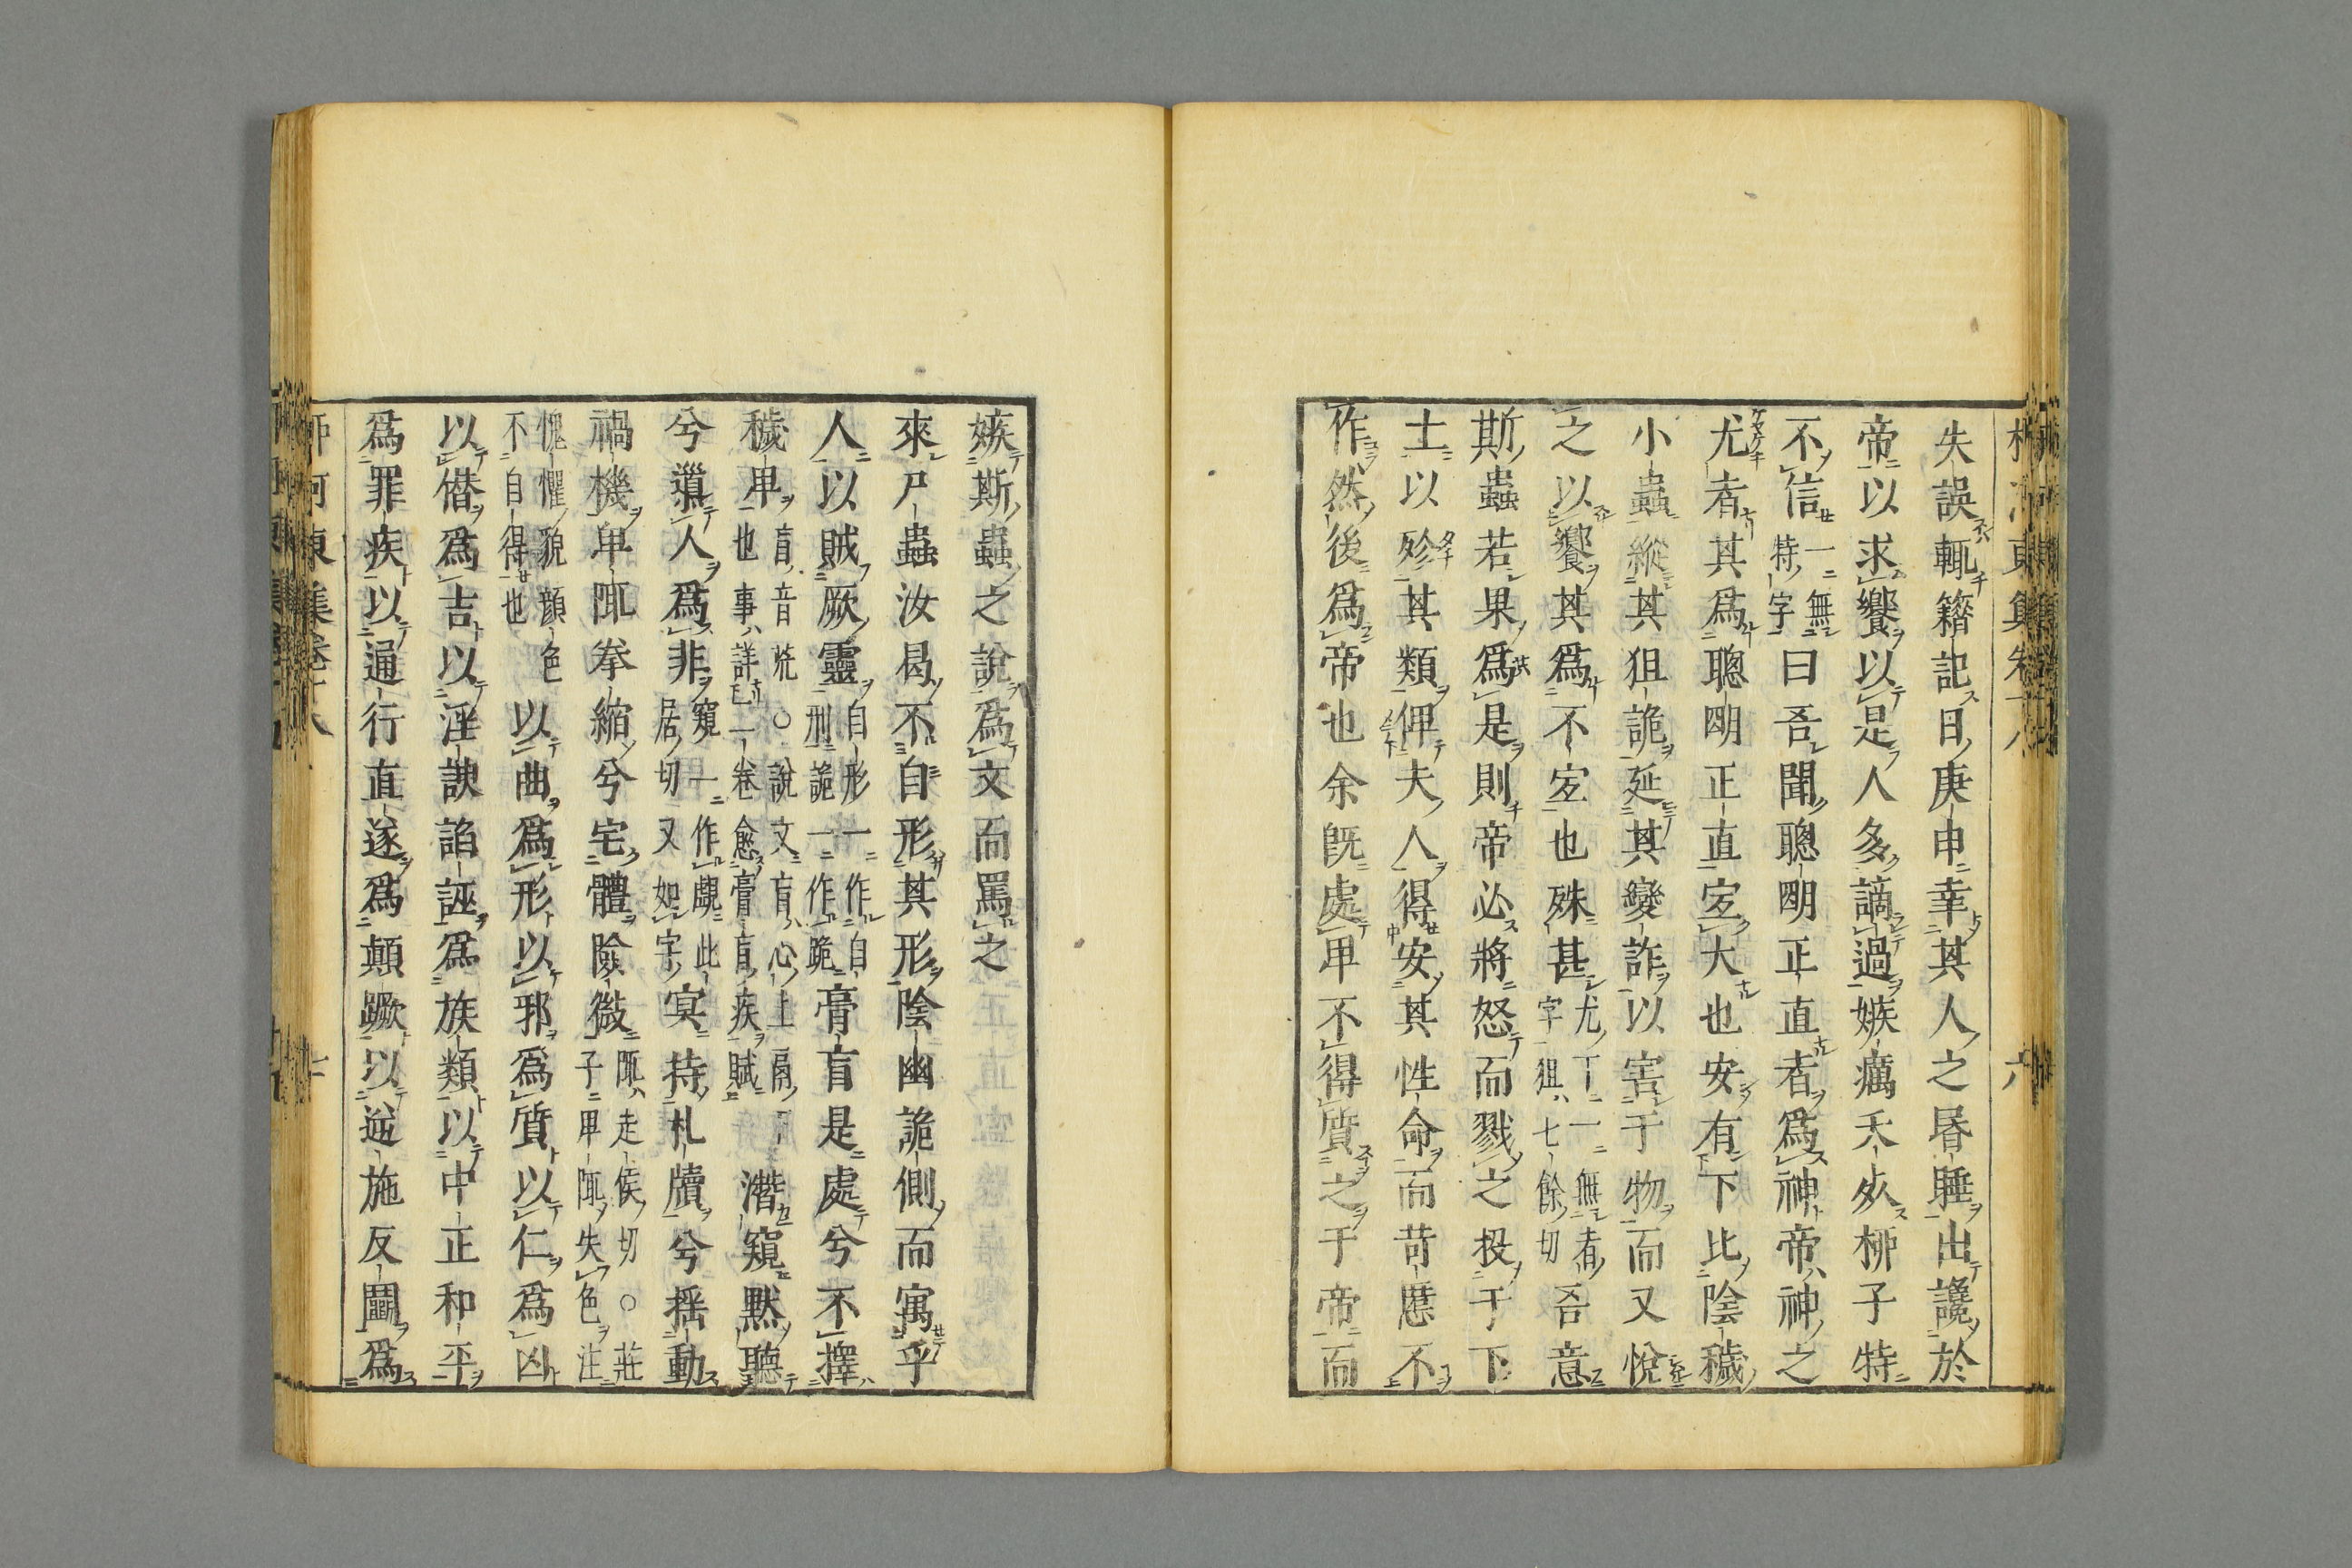 失誤輒籍記日庚申幸其人之昬睡出讒於
帝以求饗以是人多謫過嫉癘夭死柳子特
不信一無特字曰吾聞聰明正直者爲神帝神之
尤者其爲聰明正直宜大也安有下比陰穢
小蟲縱其狙詭延其變詐以害于物而又悅
之以饗其爲不宜也殊甚尤下一無者字狙七餘切吾意
斯蟲若果爲是則帝必將怒而戮之投于下
土以殄其類俾夫人得安其性命而苛慝不
作然後爲帝也余旣處卑不得質之于帝而
嫉斯蟲之說爲文而罵之
來尸蟲汝曷不自形其形陰幽詭側而寓乎
人以賊厥靈自形一作自刑詭一作跪膏肓是處兮不擇
穢卑肓音荒○說文肓心上鬲下也事詳一卷愈膏肓疾賦潛窺默聽
兮導人爲非窺一作覷此居切又如字冥持札牘兮搖動
禍機卑陬拳縮兮宅體險微陬走侯切○莊子卑陬失色注
愧懼貌顔色不自得也以曲爲形以邪爲質以仁爲凶
以僣爲吉以淫諛諂誣爲族類以中正和平
爲罪疾以通行直遂爲顛蹶以逆施反鬬爲
柳河東集卷十八